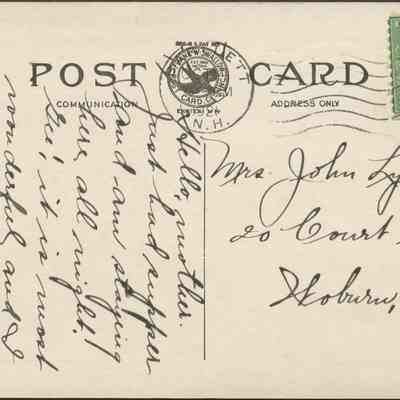 POST CARD
COMMUNICATION
ADDRESS ONLY
N.H.
Hello, mother.
Just had supper
and am staying
here all night!
Gee! it is most
wonderful and I
Mrs. John
20 Court
Woburn,